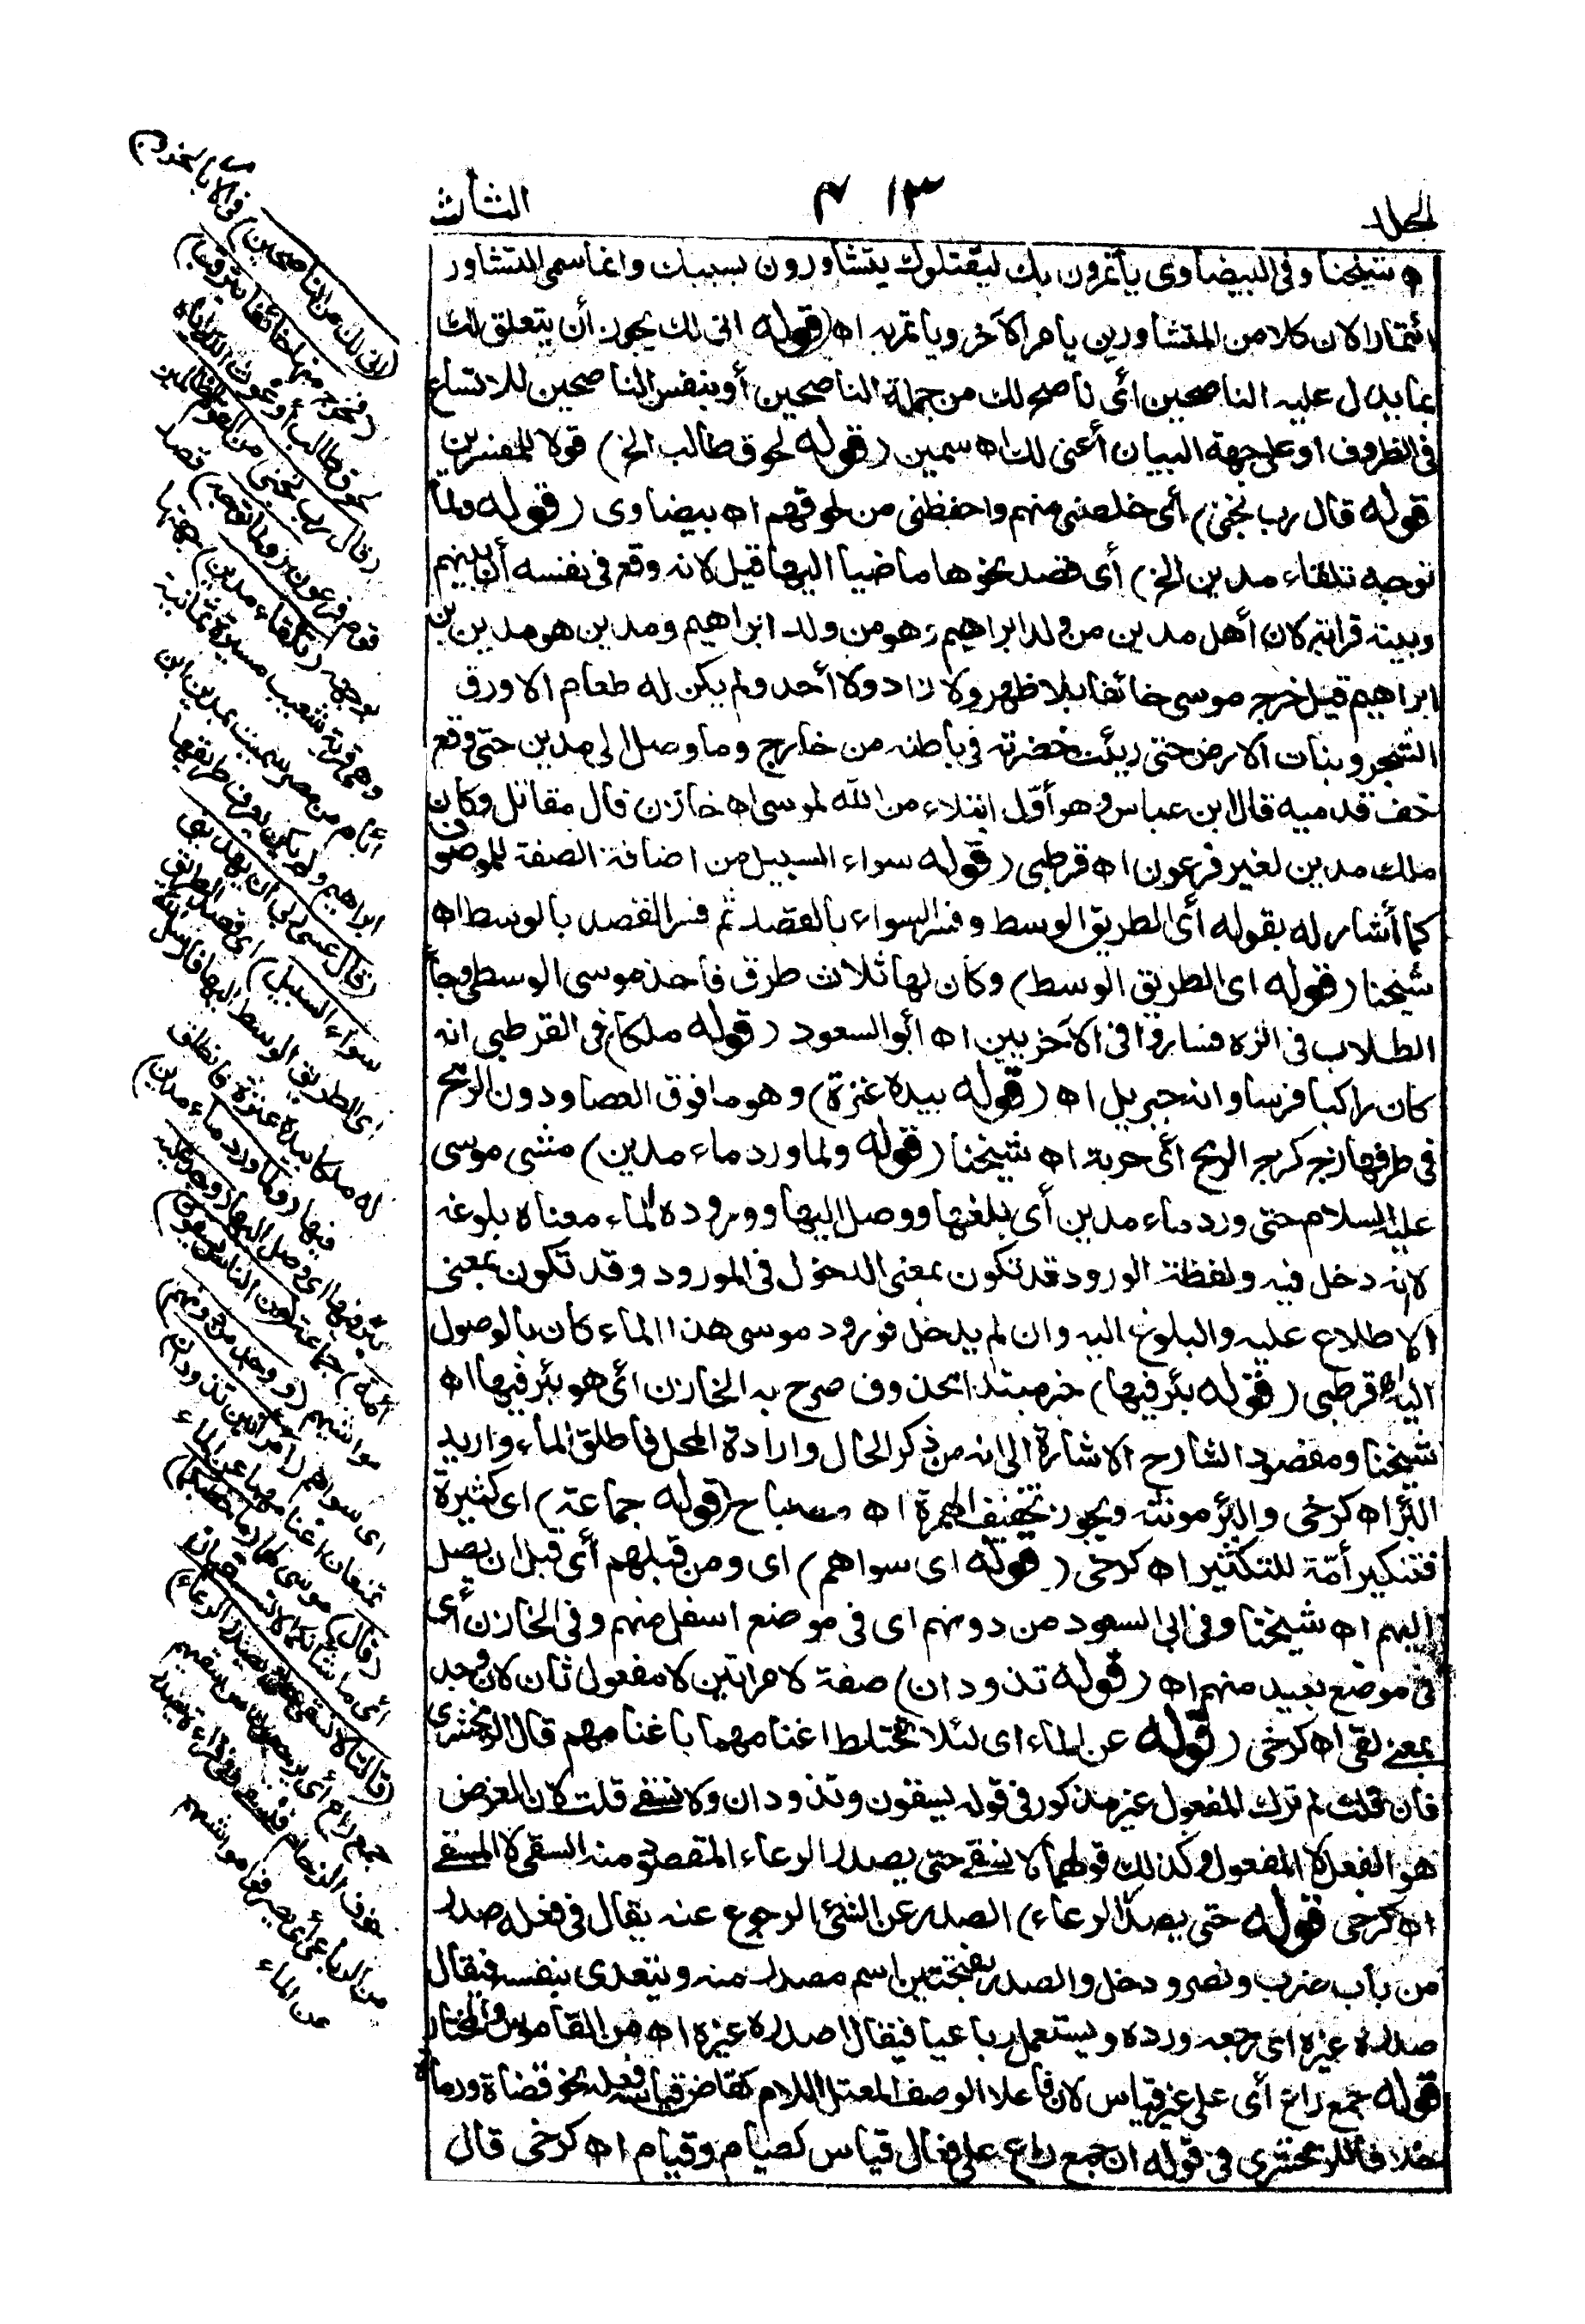 الجلد ٣١٣ الثالث
اه شيخنا وفى البيضاوى يأتمرون بك ليقتلوك يتشاورون بسببك وانما سمى التشاور
ائتمارا لان كلا من المتشاورين يامر الآخر وياتمر به اه (قوله انى لك يجوز أن يتعلق لك
بما يدل عليه الناصحين اى ناصح لك من جملة الناصحين أو بنفس الناصحين للاتساع
فى الظروف او على جهة البيان أعنى لك اه سمين (قوله لحوق طالب الخ) قولا للمفسرين
قوله قال رب نجنى) أى خلصنى منهم واحفظنى من لحوقهم اه بيضاوى (قوله ولما
توجه تلقاء مدين الخ) أى قصد نحوها ماضيا اليها قيل لانه وقع فى نفسه أن بينهم
وبينه قرابة لان أهل مدين من ولد ابراهيم وهو من ولد ابراهيم ومدين هو مدين بن
ابراهيم قيل خرج موسى خائفا بلا ظهر ولا زاد ولا أحد ولم يكن له طعام الا ورق
الشجر ونبات الارض حتى ريئت خضرته فى باطنه من خارج وما وصل الى مدين حتى وقع
خف قدميه قال ابن عباس وهو أول ابتلاء من الله لموسى اه خازن قال مقاتل وكان
ملك مدين لغير فرعون اه قرطبى (قوله سواء السبيل من اضافة الصفة للموصوف
كما أشار له بقوله أى الطريق الوسط وفسر السواء بالقصد ثم فسر القصد بالوسط اه
شيخنا (قوله اى الطريق الوسط) وكان لها ثلاث طرق فأخذ موسى الوسطى وجاء
الطلاب فى اثره فساروا فى الآخريين اه ابو السعود (قوله ملكا) فى القرطبى انه
كان راكبا فرسا وانه جبريل اه (قوله بيده عنزة) وهو ما فوق العصا ودون الرمح
فى طرفها زج كزج الرمح أى حربة اه شيخنا (قوله ولما ورد ماء مدين) مشى موسى
عليه السلام حتى ورد ماء مدين أى بلغها ووصل اليها ووروده الماء معناه بلوغه
لا انه دخل فيه ولفظة الورود قد تكون بمعنى الدخول فى المورود وقد تكون بمعنى
الاطلاع عليه والبلوغ اليه وان لم يدخل فورود موسى هذا الماء كان بالوصول
اليه اه قرطبى (قوله بئر فيها) خبر مبتدا محذوف صرح به الخازن أى هو بئر فيها اه
شيخنا ومقصود الشارح الاشارة الى انه من ذكر الحال وارادة المحل فاطلق الماء واريد
البئر اه كرخى والبئر مونثة ويجوز تخفيف الهمزة اه مصباح (قوله جماعة) اى كثيرة
فتنكير أمّة للتكثير اه كرخى (قوله اى سواهم) اى ومن قبلهم أى قبل ان يصل
اليهم اه شيخنا وفى ابى السعود من دونهم اى فى موضع اسفل منهم وفى الخازن أى
فى موضع بعيد منهم اه (قوله تذودان) صفة لامراتين لا مفعول ثان لان وجد
بمعنى لقى اه كرخى (قوله عن الماء اى لئلا تختلط اغنامهما باغنامهم قال الزمخشرى
فان قلت لم ترك المفعول غير مذكور فى قوله يسقون وتذودان ولا نسقى قلت لان الغرض
هو الفعل لا المفعول وكذلك قولهما لا نسقى حتى يصدر الرعاء المقصود منه السقى لا المسقى
اه كرخى قوله حتى يصدر الرعاء) الصدر عن الشئ الرجوع عنه يقال فى فعله صدر
من باب ضرب ونصر ودخل والصدر بفتحتين اسم مصدر منه ويتعدى بنفسه فيقال
صدره غيره اى رجعه ورده ويستعمل رباعيا فيقال اصدره غيره اه من القاموس والمختار
قوله جمع راع أى على غير قياس لان فاعلا الوصف المعتل اللام كقاض قياسه فعلة نحو قضاة ورماة
خلافا للزمخشرى فى قوله ان جمع راع على فعال قياس كصيام وقيام اه كرخى قال
(انى لك من الناصحين) فى الامر بالخروج
(فخرج منها خائفا يترقب)
لحوق طالب أو غوث الله اياه
(قال رب نجنى من القوم الظالمين
قوم فرعون (ولما توجه) قصد
بوجهه (تلقاء مدين) جهتها
وهى قرية شعيب مسيرة ثمانية
أيام من مصر سميت بمدين ابن
ابراهيم ولم يكن يعرف طريقها
(قال عسى ربى ان يهدينى
سواء السبيل) اى قصد الطريق
اى الطريق الوسط اليها فارسل الله
له ملكا بيده عنزة فانطلق
فيها (ولما ورد ماء مدين)
بئر فيها اى وصل اليها (وجد عليه
أمّة) جماعة (من الناس يسقون)
مواشيهم (ووجد من دونهم)
اى سواهم (امراتين تذودان
تمنعان اغنامهما عن الماء
(قال) موسى لهما (ما خطبكما)
أى ما شانكما لا تسقيان
(قالتا لا نسقى حتى يصدر الرعاء)
جمع راع أى يرجعون من سقيهم
خوف الزحام فنسقى وفى قراءة يصدر
من الرباعى أى يصرفوا مواشيهم
عن الماء